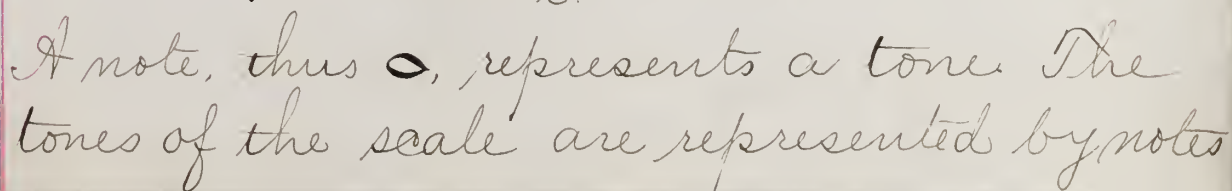 A note, thus 𝅝, represents a tone. The
tones of the scale are represented by notes